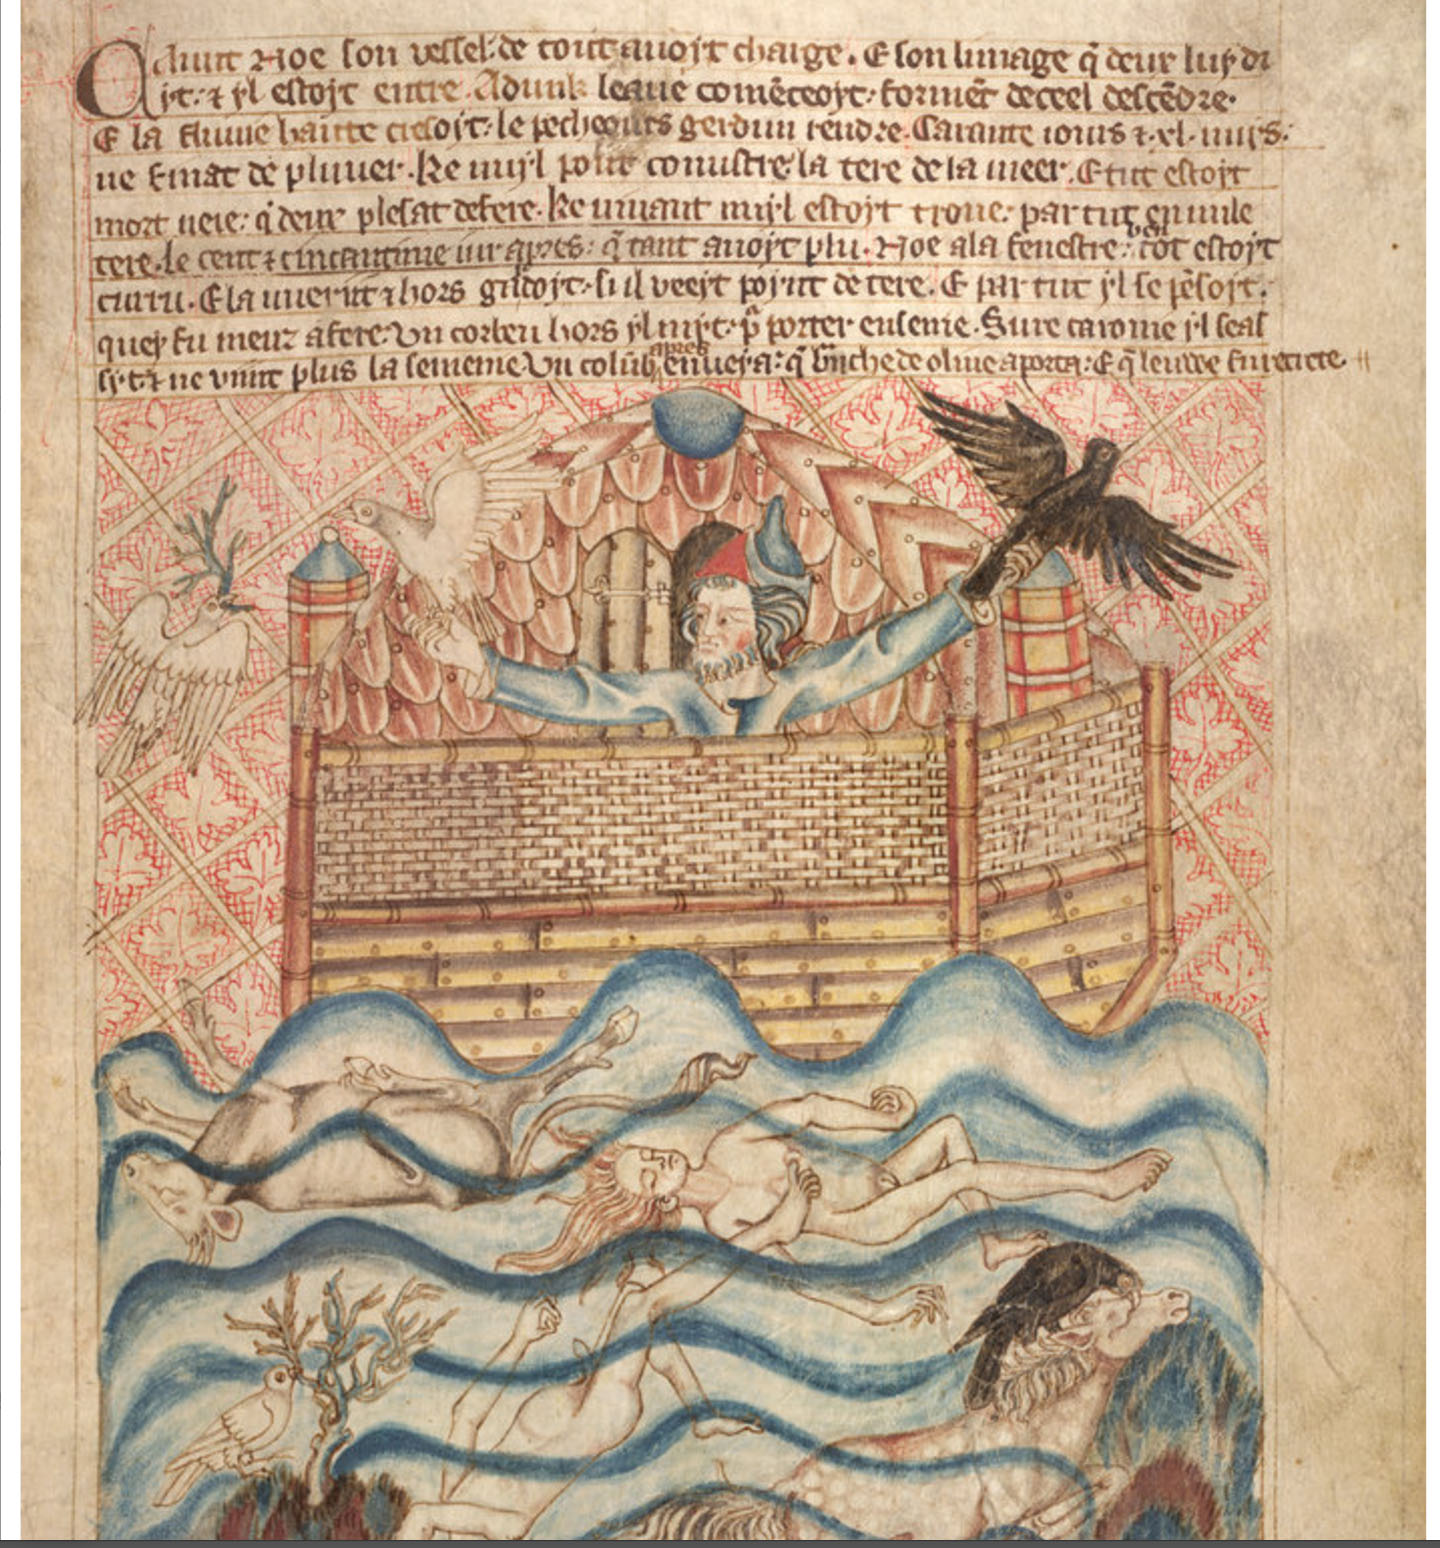 Adunt Noe son vessel: de tout auoit charge. E son linnage q̄ deux luy di
it: ⁊ yl estoit entre. Adunk leaue comēceoyt: formēt deceel descēdre.
E la fluuie hautte cresoit: le pecheours gerdun rendre. Carante iours ⁊ .xl. nuys.
ne finat de pluuer. Ke nuyl pout conustre la tere de la meer. E tut estoit
mort ueie: q̄ deux plesat defere. Ke uiuant nuyl estoyt troue: par tut en nule
tere. le cent ⁊ cincantime iur apres: q̄ tant auoyt plu. Noe ala fenestre: tot estoyt
E la uuerut ⁊ hors gardoyt: si il veeyt poynt de tere. E par tut yl se pēsoyt.
quey fu meuz afere. Vn corbeu hors yl myt: p̄ porter enseine. Sure caroine yl seas
syt: ⁊ ne vint plus la semeine. Vn colūb apres enueya: q̄ bñche de oliue aporta: E q̄ leuwe fu